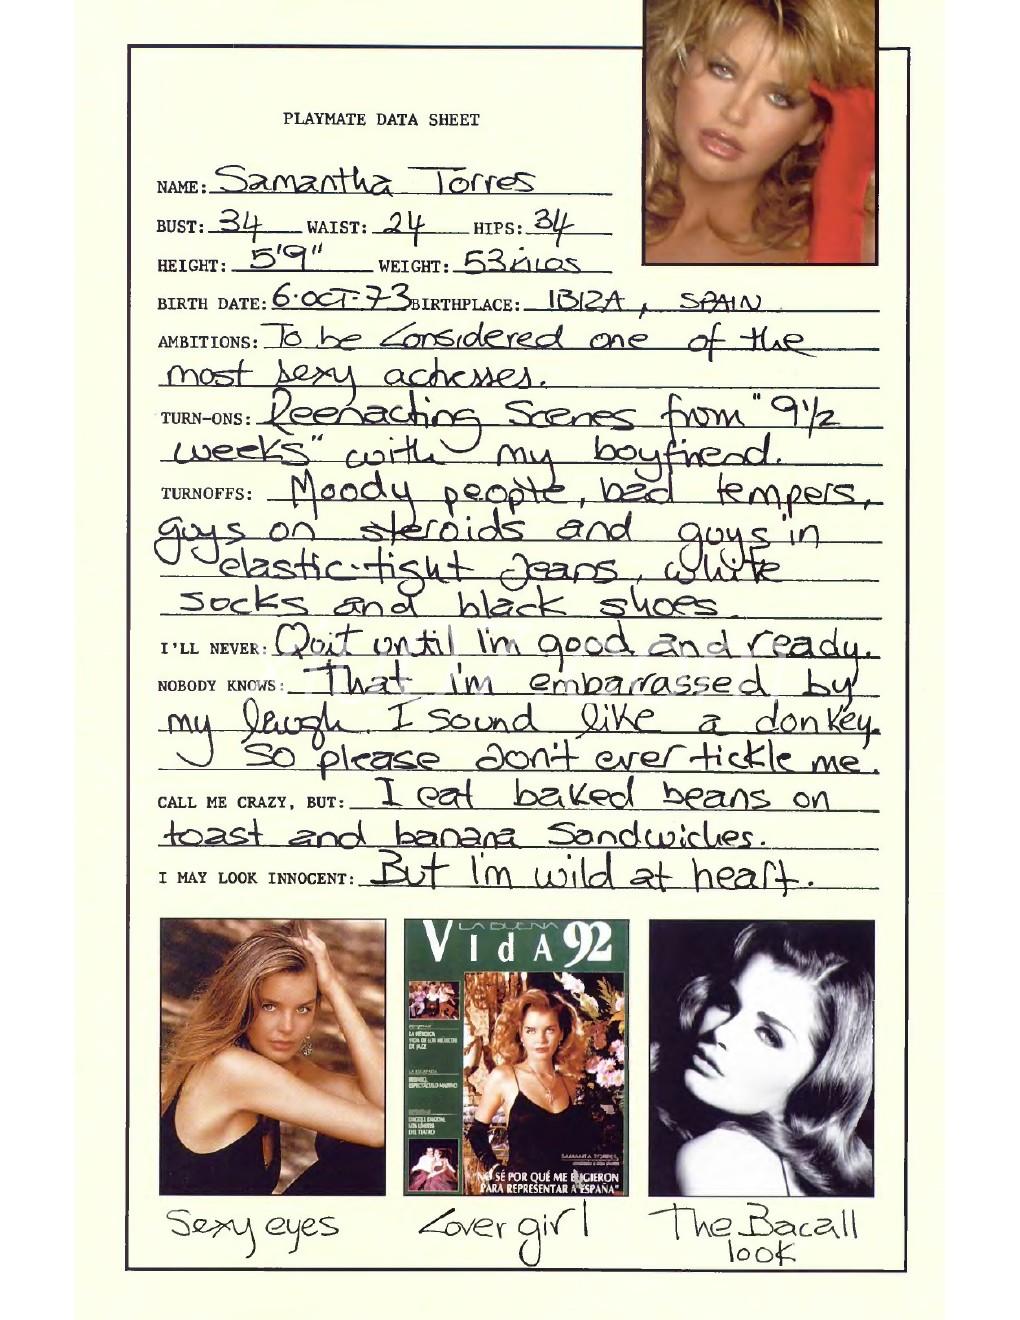 PLAYMATE DATA SHEET
NAME: Samantha Torres
BUST: 34 WAIST: 24 HIPS: 34
HEIGHT: 5'9" WEIGHT: 53 kilos
BIRTH DATE: 6·OCT-73 BIRTHPLACE: IBIZA, SPAIN
AMBITIONS: To be considered one of the
most sexy actresses.
TURN-ONS: Reenacting Scenes from "9½
weeks" with my boyfriend.
TURNOFFS: Moody people, bad tempers,
guys on steroids and guys in
elastic-tight Jeans, white
socks and black shoes
I'LL NEVER: Quit until I'm good and ready.
NOBODY KNOWS: That I'm embarrassed by
my laugh. I sound like a donkey.
So please don't ever tickle me.
CALL ME CRAZY, BUT: I eat baked beans on
toast and banana Sandwiches.
I MAY LOOK INNOCENT: But I'm wild at heart.
LA BUENA
VIdA 92
LA HEROICA
VIDA DE LOS MUSICOS
DE JAZZ
LA ESCAPADA
ESPECTACULO MARINO
LOS LIMITES
DEL TEATRO
SAMANTA TORRES
"NO SÉ POR QUÉ ME ELIGIERON
PARA REPRESENTAR A ESPAÑA"
Sexy eyes
Cover girl
The Bacall
look